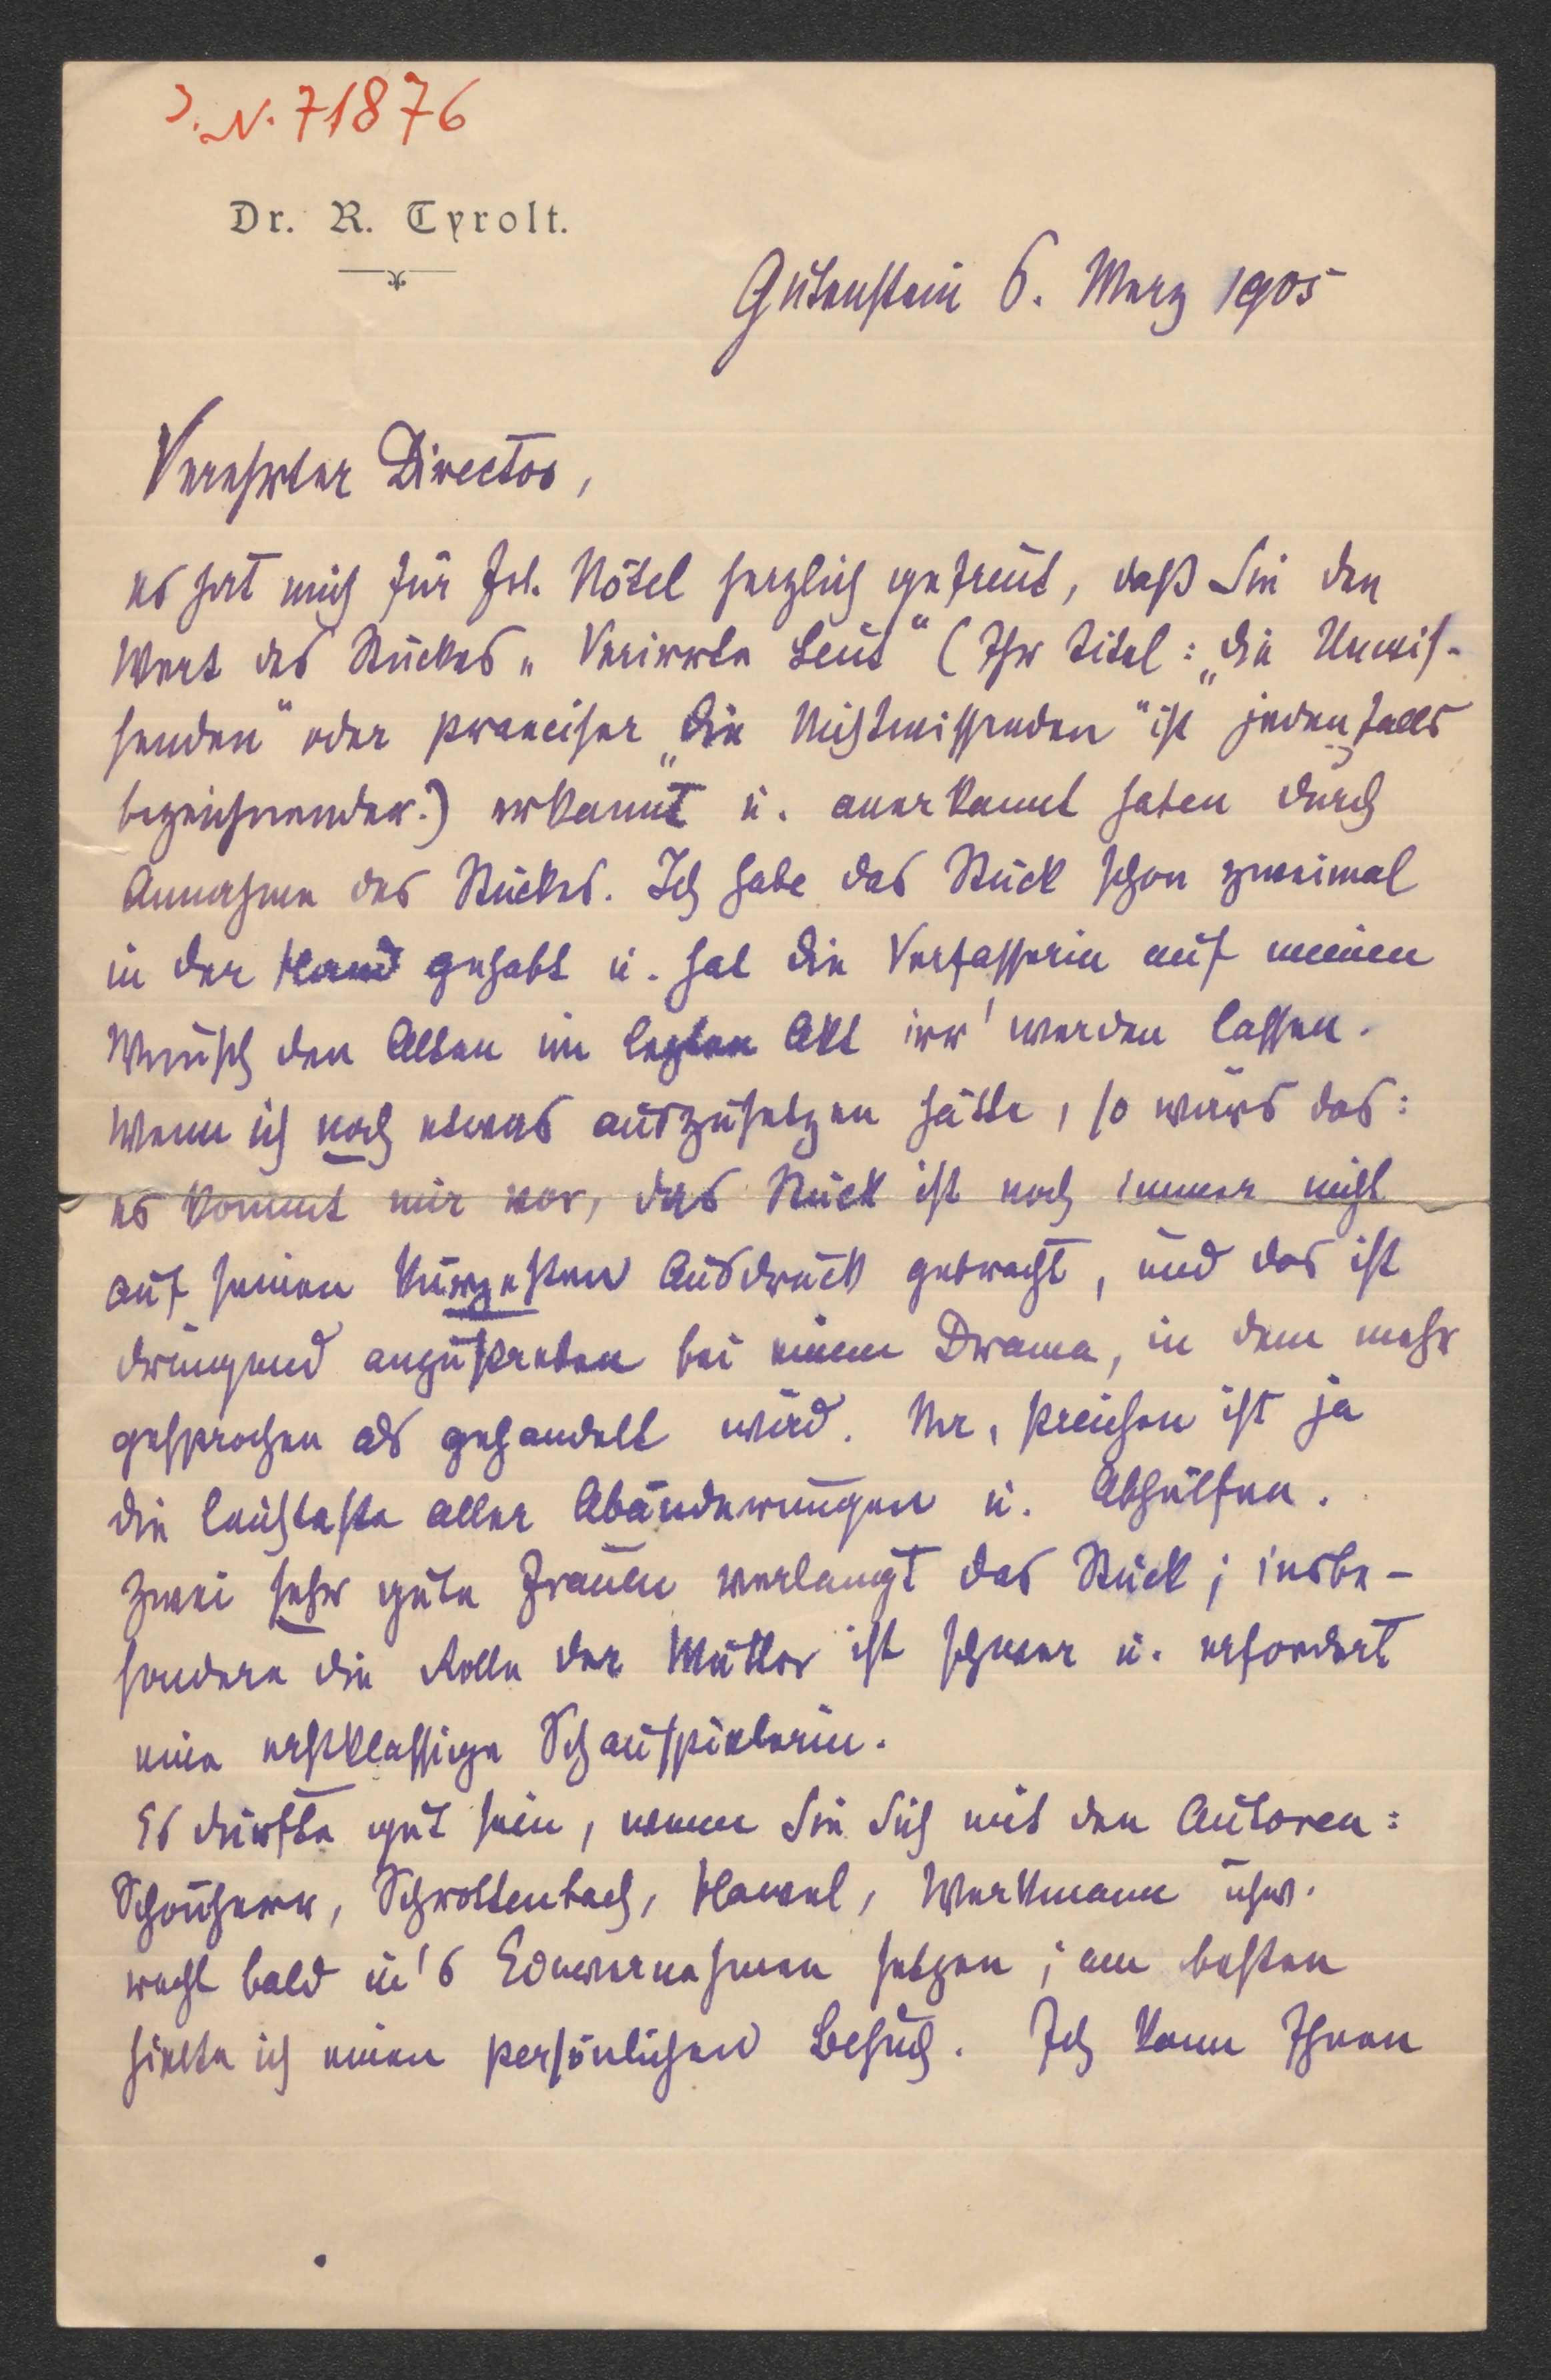 J. N. 71876
Dr. R. Tyrolt.
Gutenstein 6. Merz 1905
Verehrter Director,
es hat mich für Frl. Nötel herzlich gefreut, daß Sie den
Wert des Stückes „Verirrte Leut“ (Ihr Titel: „Die Unwis-
senden“ oder praeciser „Die Nichtwissenden“ ist jedenfalls
bezeichnender.) erkannt u. anerkannt haben durch
Annahme des Stückes. Ich habe das Stück schon zweimal
in der Hand gehabt u. hat die Verfasserin auf meinen
Wunsch den Alten im lezten Akt irr' werden lassen.
Wenn ich noch etwas auszusetzen hätte, so wärs das:
es kommt mir vor, das Stück ist noch immer nicht
auf seinen kürzesten Ausdruck gebracht, und das ist
dringend anzustreben bei einem Drama, in dem mehr
gesprochen als gehandelt wird. Nr, streichen ist ja
die leichteste aller Abänderungen u. Abhülfen.
Zwei sehr gute Frauen verlangt das Stück; insbe-
sondere die Rolle der Mutter ist schwer u. erfordert
eine erstklassige Schauspielerin.
Es dürfte gut sein, wenn Sie Sich mit den Autoren:
Schönherr, Schrottenbach, Hawel, Werkmann usw.
recht bald in's Einvernehmen setzen; am besten
hielte ich einen persönlichen Besuch. Ich kann Ihnen